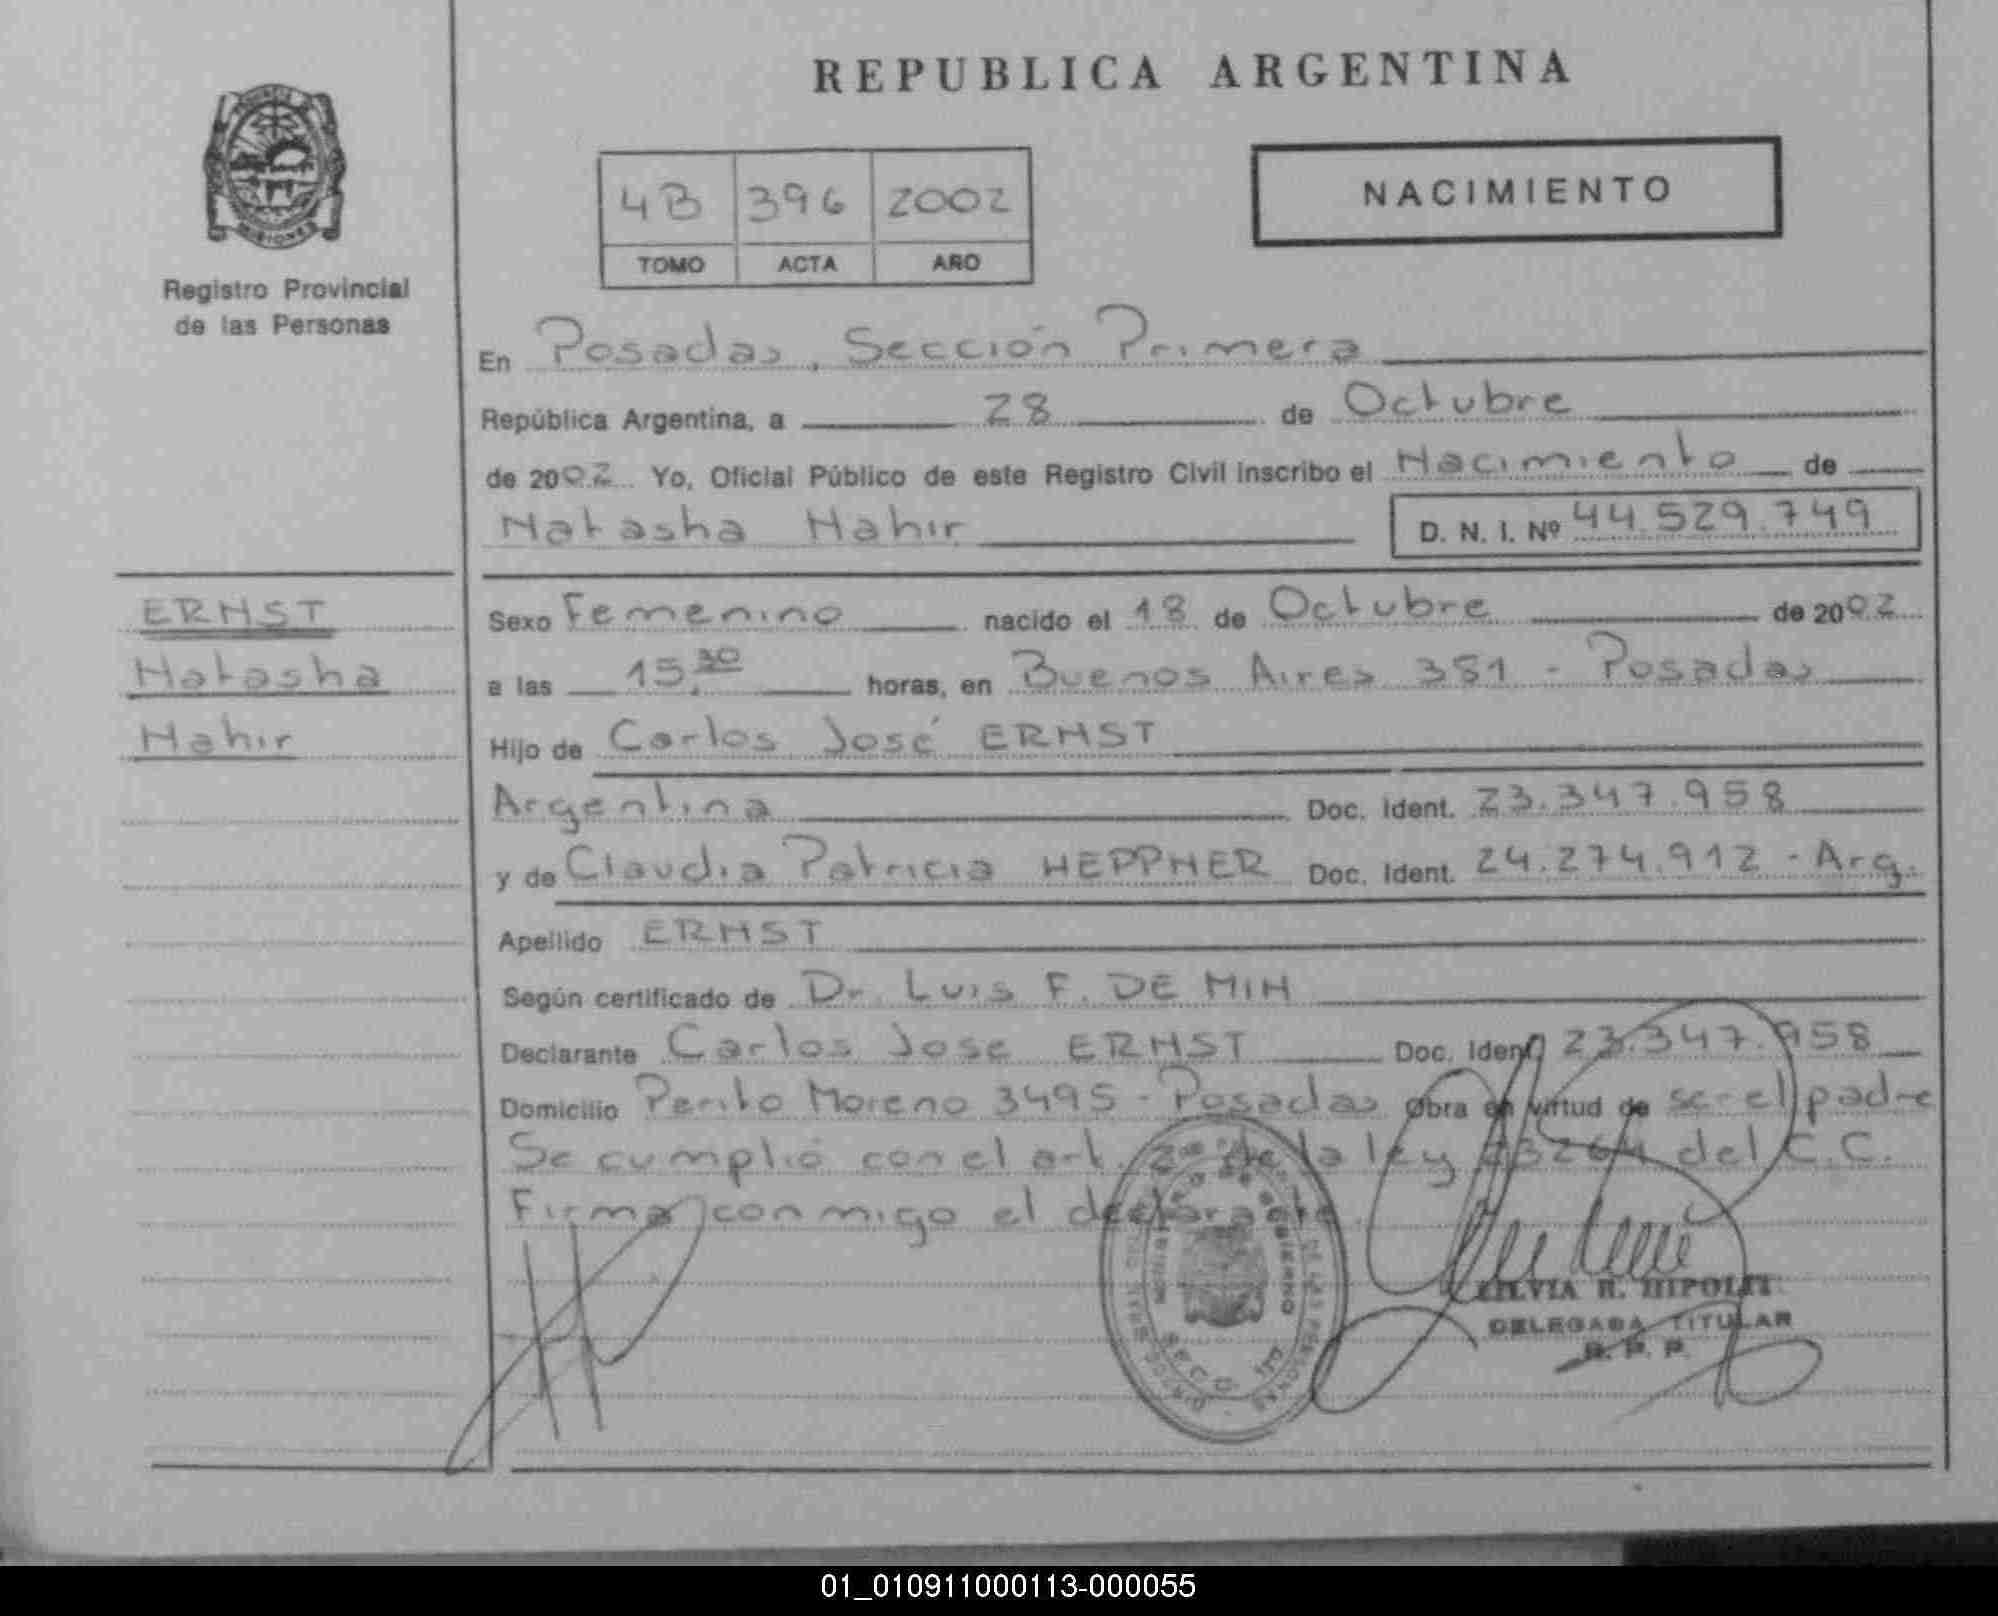 REPUBLICA ARGENTINA
NACIMIENTO
4B 396 2002
TOMO ACTA AÑO
Registro Provincial
de las Personas
En Posadas, Sección Primera
República Argentina, a 28 de Octubre
de 2002 Yo, Oficial Público de este Registro Civil inscribo el Nacimiento de
Natasha Nahir D. N. I. Nº 44.529.749
ERNST
Natasha
Nahir
Sexo Femenino nacido el 18 de Octubre de 2002
a las 15.30 horas, en Buenos Aires 381 - Posadas
Hijo de Carlos José ERNST
Argentina Doc. Ident. 23.347.958
y de Claudia Patricia HEPPNER Doc. Ident. 24.274.912 - Arg.
Apellido ERNST
Según certificado de Dr. Luis F. DE MIN
Declarante Carlos José ERNST Doc. Ident. 23.347.958
Domicilio Perito Moreno 3495 - Posadas Obra en virtud de ser el padre
Se cumplió con el art. 2º de la ley 23264 del C.C.
Firma conmigo el declarante.
SILVIA R. HIPOLIT
DELEGADA TITULAR
R. P. P.
01_010911000113-000055